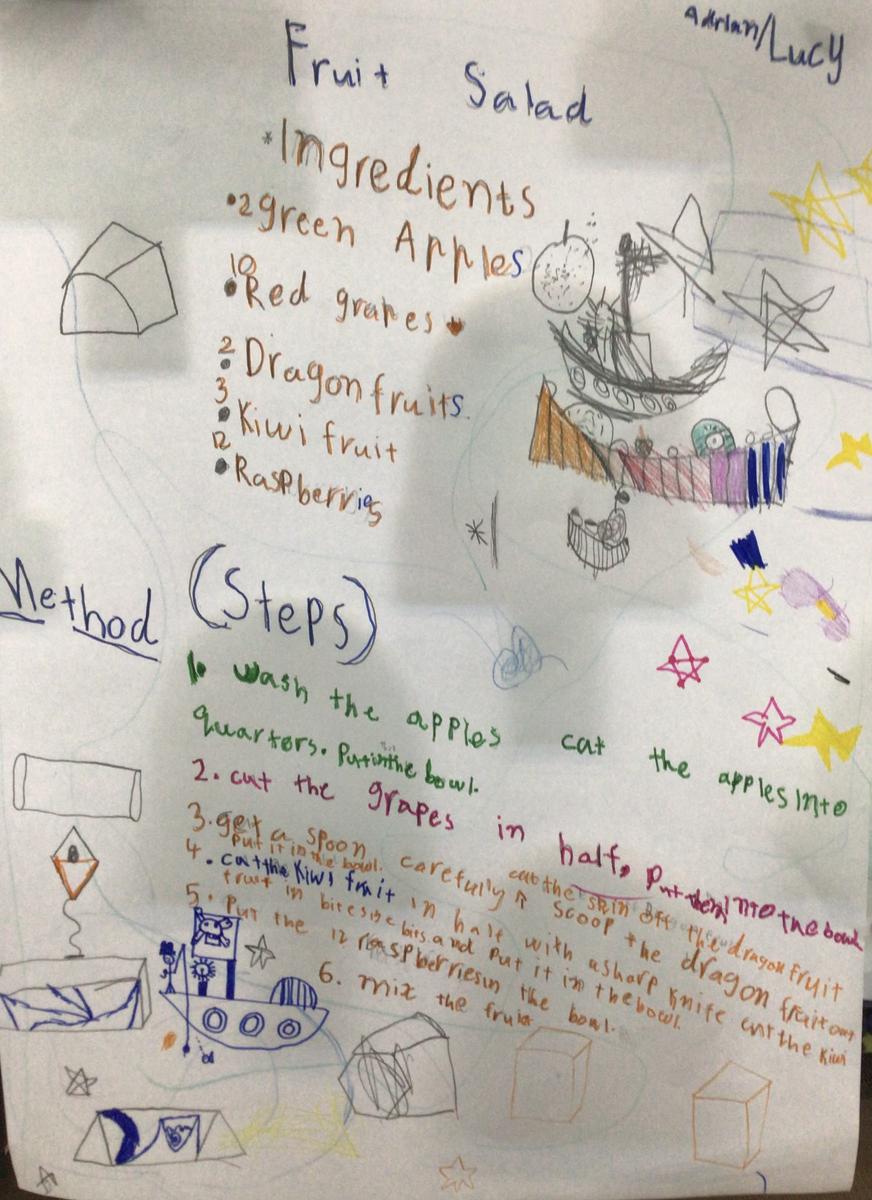 Adrian/Lucy
Fruit Salad
*Ingredients
•2 green Apples
10
•Red grapes
2
•Dragonfruits
3
•Kiwi fruit
12
•Raspberries
Method (Steps)
1. wash the apples cat the apples into
quarters. Put in the bowl.
2. cut the grapes in half. Put them into the bowl
3. get a spoon carefully cut the skin off the dragon fruit
scoop the dragon fruit out
Put it in the bowl.
4. cut the Kiwi fruit in half with a sharp knife cut the Kiwi
fruit in bitesize bits and put it in the bowl.
5. Put the 12 raspberries in the bowl.
6. mix the fruit